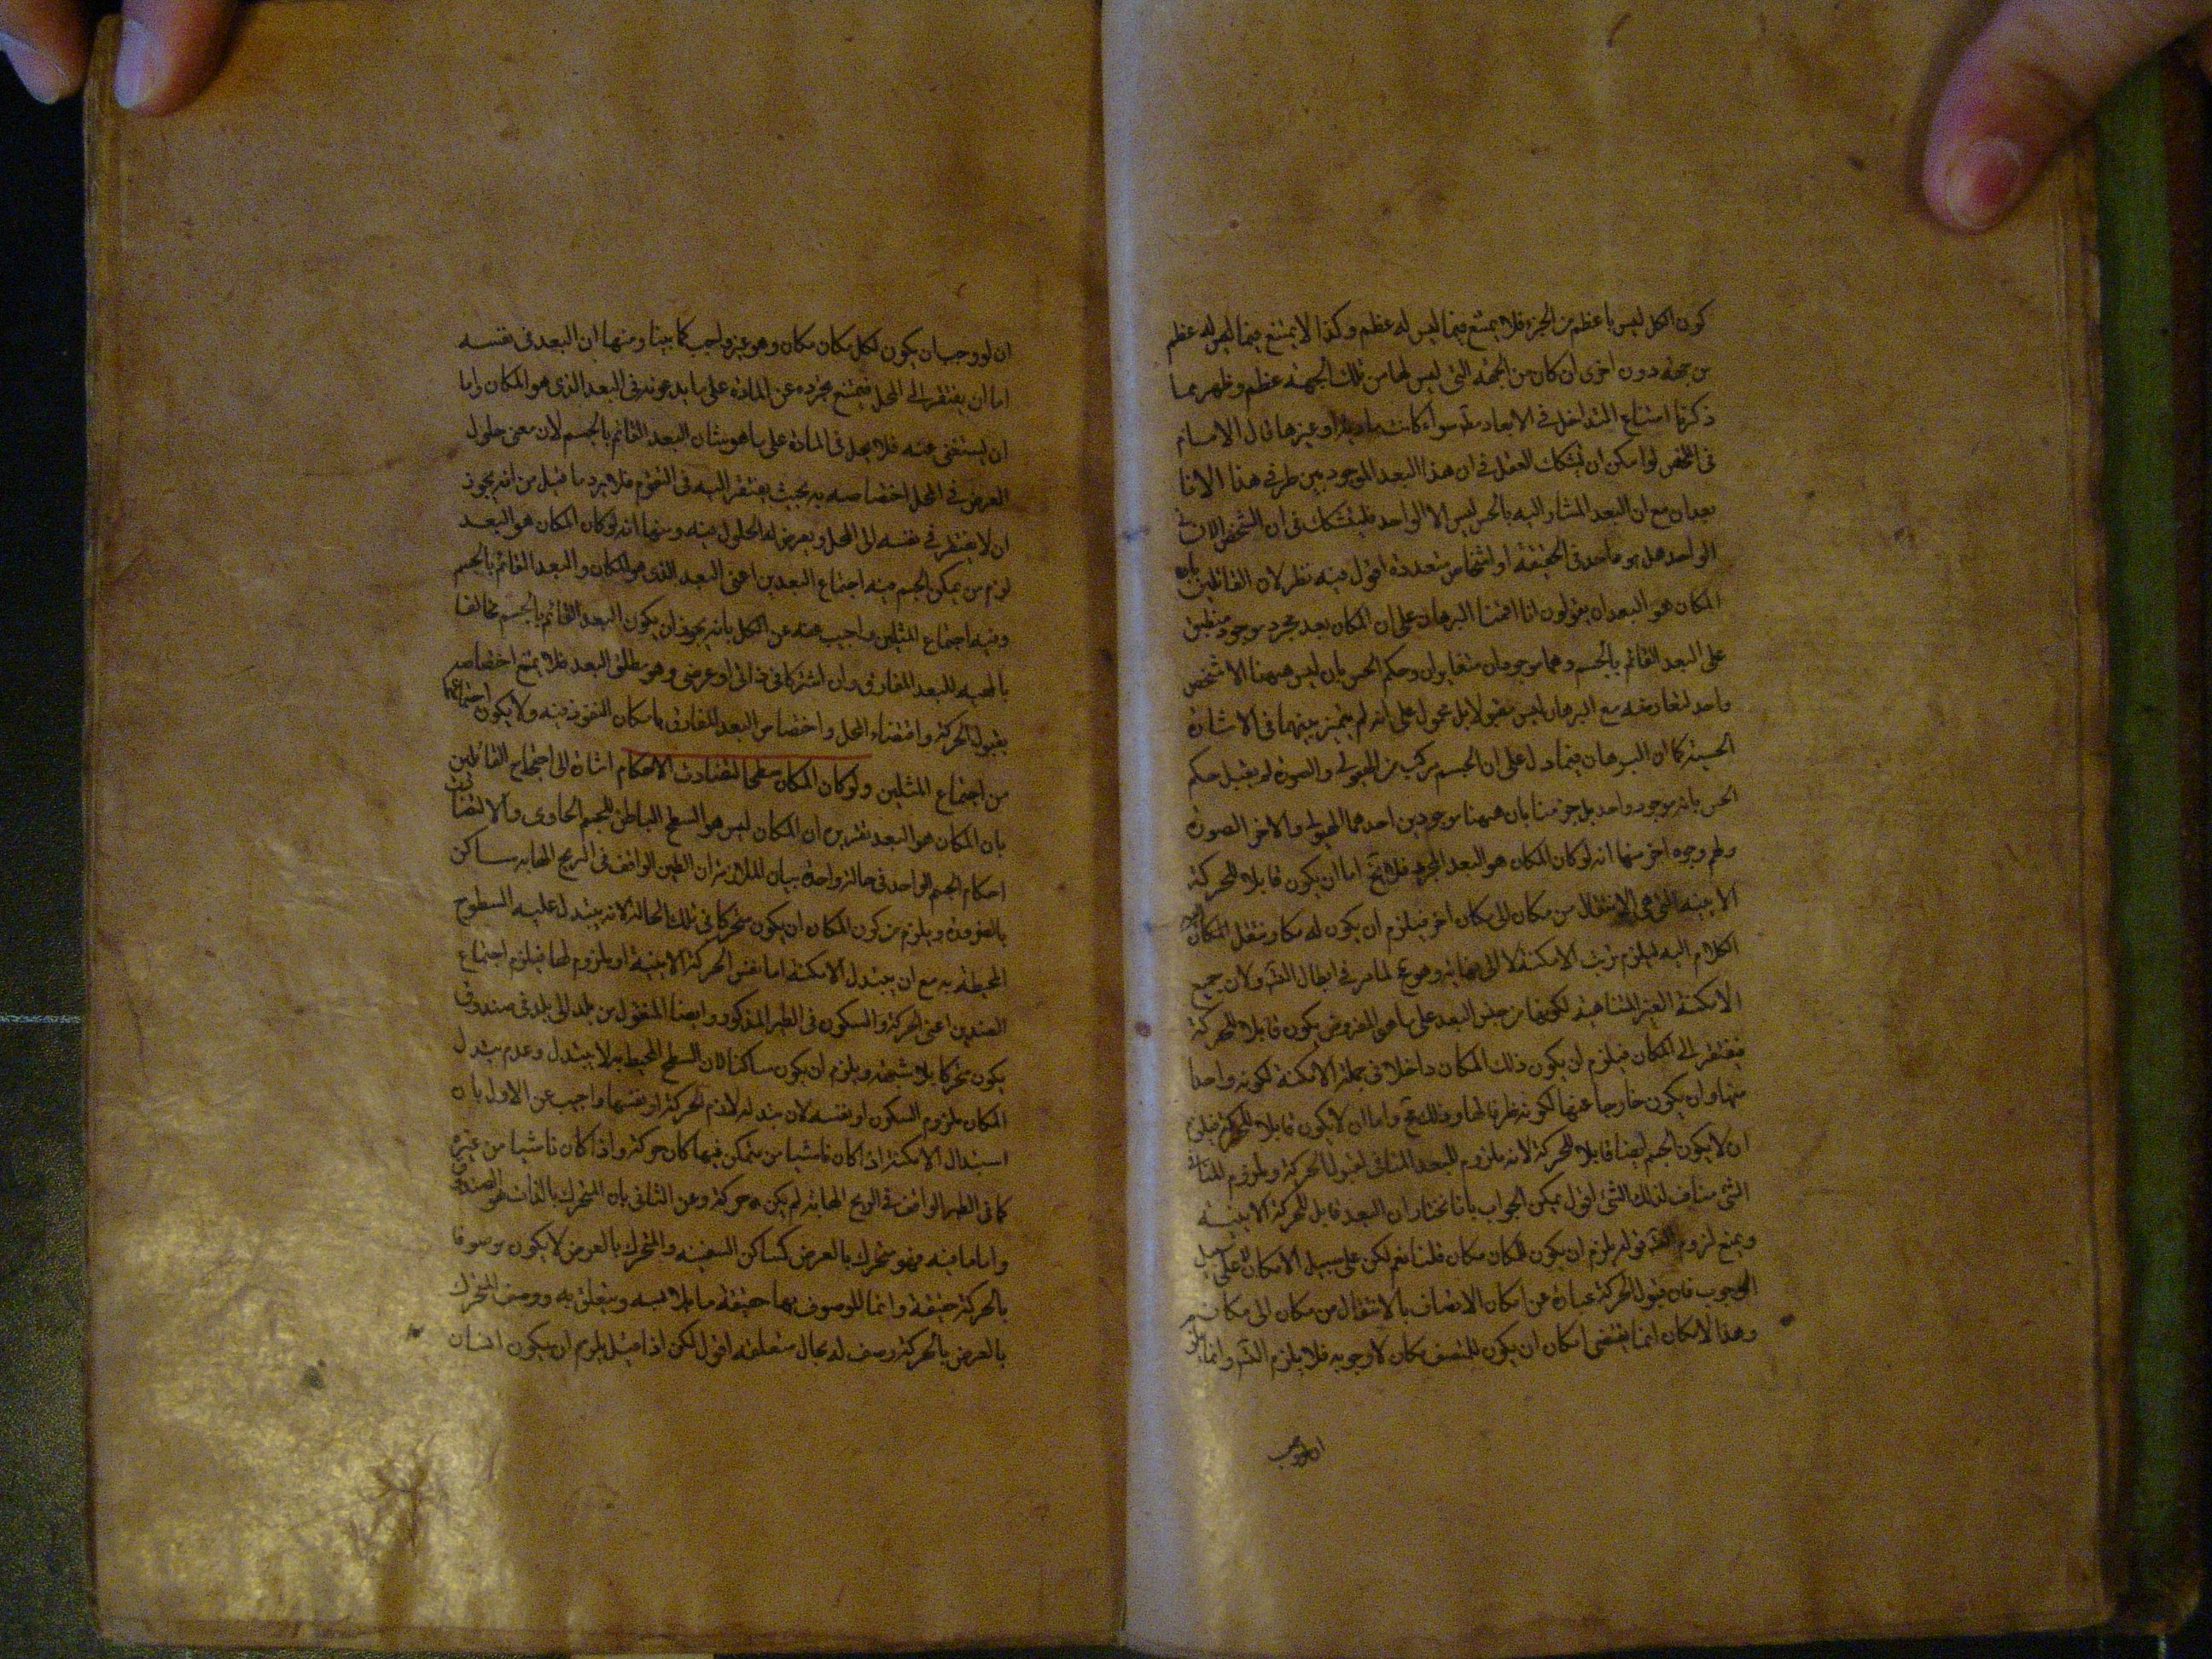 كون الكل ليس باعظم من الجزء فلا يمتنع فيما ليس له عظم وكذا لا يمتنع فيما ليس له عظم
من جهة دون اخرى ان كان من الجهة التى ليس لها من تلك الجهة عظم وظهر بما
ذكرنا امتناع التداخل فى الابعاد مط سواء كانت مادية او غيرها قال الامام
فى الملخص لو امكن ان يشكك العقل فى ان هذا البعد الموجود بين طرفى هذا الاناء
بعدان مع ان البعد المشار اليه بالحس ليس الا الواحد فليتشكك فى ان الشخص
الواحد هل هو واحد فى الحقيقة او اشخاص متعددة اقول فيه نظر لان القائلين بان
المكان هو البعد ان يقولون انا اقمنا البرهان على ان المكان بعد مجرد موجود منطبق
على البعد القائم بالجسم وهما موجودان متغايران وحكم الحس بان ليس ههنا الا شخص
واحد لتعارضه مع البرهان ليس مقبولا بل محمول على انه لم يتميز بينهما فى الاشارة
الحسية كما ان البرهان فيما دل على ان الجسم مركب من الهيولى والصورة لم يقبل حكم
الحس بانه موجود واحد بل جزمنا بان ههنا موجودين احدهما الهيولى والاخر الصورة
ولهم وجوه اخر منها انه لو كان المكان هو البعد المجرد فلا يخ اما ان يكون قابلا للحركة
الاينية التى هى الانتقال من مكان الى مكان اخر فيلزم ان يكون له مكان وننقل
الكلام اليه فيلزم ترتب الامكنة لا الى نهاية وهو مح لما مر فى ابطال التس ولان جميع
الامكنة الغير المتناهية لكونها من جنس البعد على ما هو المفروض يكون قابلا للحركة
فتفتقر الى المكان فيلزم ان يكون ذلك المكان داخلا فى جملة الامكنة لكونه واحدا
منها وان يكون خارجا عنها لكونه ظرفا لها وذلك مح واما ان لا يكون قابلا للحركة فيلزم
ان لا يكون الجسم ايضا قابلا للحركة لانه ملزوم للبعد المنافى لقبول الحركة وملزوم المنافى
الشئ مناف لذلك الشئ اقول يمكن الجواب بانا نختار ان البعد قابل للحركة الاينية
ويمنع لزوم التس قوله يلزم ان يكون للمكان مكان قلنا نعم لكن على سبيل الامكان لا على سبيل
الوجوب فان قبول الحركة عبارة عن امكان الاتصاف بالانتقال من مكان الى مكان
وهذا الامكان انما يقتضى امكان ان يكون للمتصف مكان لا وجوبه فلا يلزم التس وانما يلزم
ان لو وجب
ان لو وجب ان يكون لكل مكان مكان وهو غير واجب كما بينا ومنها ان البعد فى نفسه
اما ان يفتقر الى المحل فيمتنع تجرده عن المادة على ما يدعونه فى البعد الذى هو المكان واما
ان يستغنى عنه فلا يحل فى المادة على ما هو شان البعد القائم بالجسم لان معنى حلول
العرض فى المحل اختصاصه به بحيث يفتقر اليه فى التقوم فلا يرد ما قيل من انه يجوز
ان لا يفتقر فى نفسه الى المحل ويعرض له الحلول فيه ومنها انه لو كان المكان هو البعد
لزم من تمكن الجسم فيه اجتماع البعدين اعنى البعد الذى هو المكان والبعد القائم بالجسم
وفيه اجتماع المثلين واجيب عنه عن الكل بانه يجوز ان يكون البعد القائم بالجسم مخالفا
بالمهية للبعد المفارق وان اشتركا فى ذاتى او عرضى وهو مطلق البعد فلا يمتنع اختصاصه
بقبول الحركة واقتضاء المحل واختصاص البعد المفارق بامكان النفوذ فيه ولا يكون اجتماعهما
من اجتماع المثلين ولو كان المكان سطحا لتضادت الاحكام اشارة الى احتجاج القائلين
بان المكان هو البعد تقريره ان المكان ليس هو السطح الباطن للجسم الحاوى والا لتضادت
احكام الجسم الواحد فى حالة واحدة بيان الملازمة ان الطير الواقف فى الريح الهابة ساكن
بالضرورة ويلزم من كون المكان ان يكون متحركا فى تلك الحالة لانه يتبدل عليه السطوح
المحيطة به مع ان يتبدل الامكنة اما نفس الحركة الاينية او ملزوم لها فيلزم اجتماع
الضدين اعنى الحركة والسكون فى الطير المذكور وايضا المنقول من بلد الى بلد فى صندوق
يكون متحركا بلا شبهة ويلزم ان يكون ساكنا لان السطح المحيط به لا يتبدل وعدم تبدل
المكان ملزوم السكون او نفسه لان تبدله لازم الحركة او نفسها واجيب عن الاول بان
استبدال الامكنة اذا كان ناشيا من متمكن فيها كان حركة واذا كان ناشيا من غيره
كما فى الطير الواقف فى الريح الهابة لم يكن حركة وعن الثانى بان المتحرك بالذات هو الصندوق
واما ما فيه فهو متحرك بالعرض كساكن السفينة والمتحرك بالعرض لا يكون موصوفا
بالحركة حقيقة وانما الموصوف بها حقيقة ما يلابسه ويتعلق به ووصف المتحرك
بالعرض بالحركة وصف له بحال متعلقه اقول لكن اذا قيل يلزم ان يكون انسان